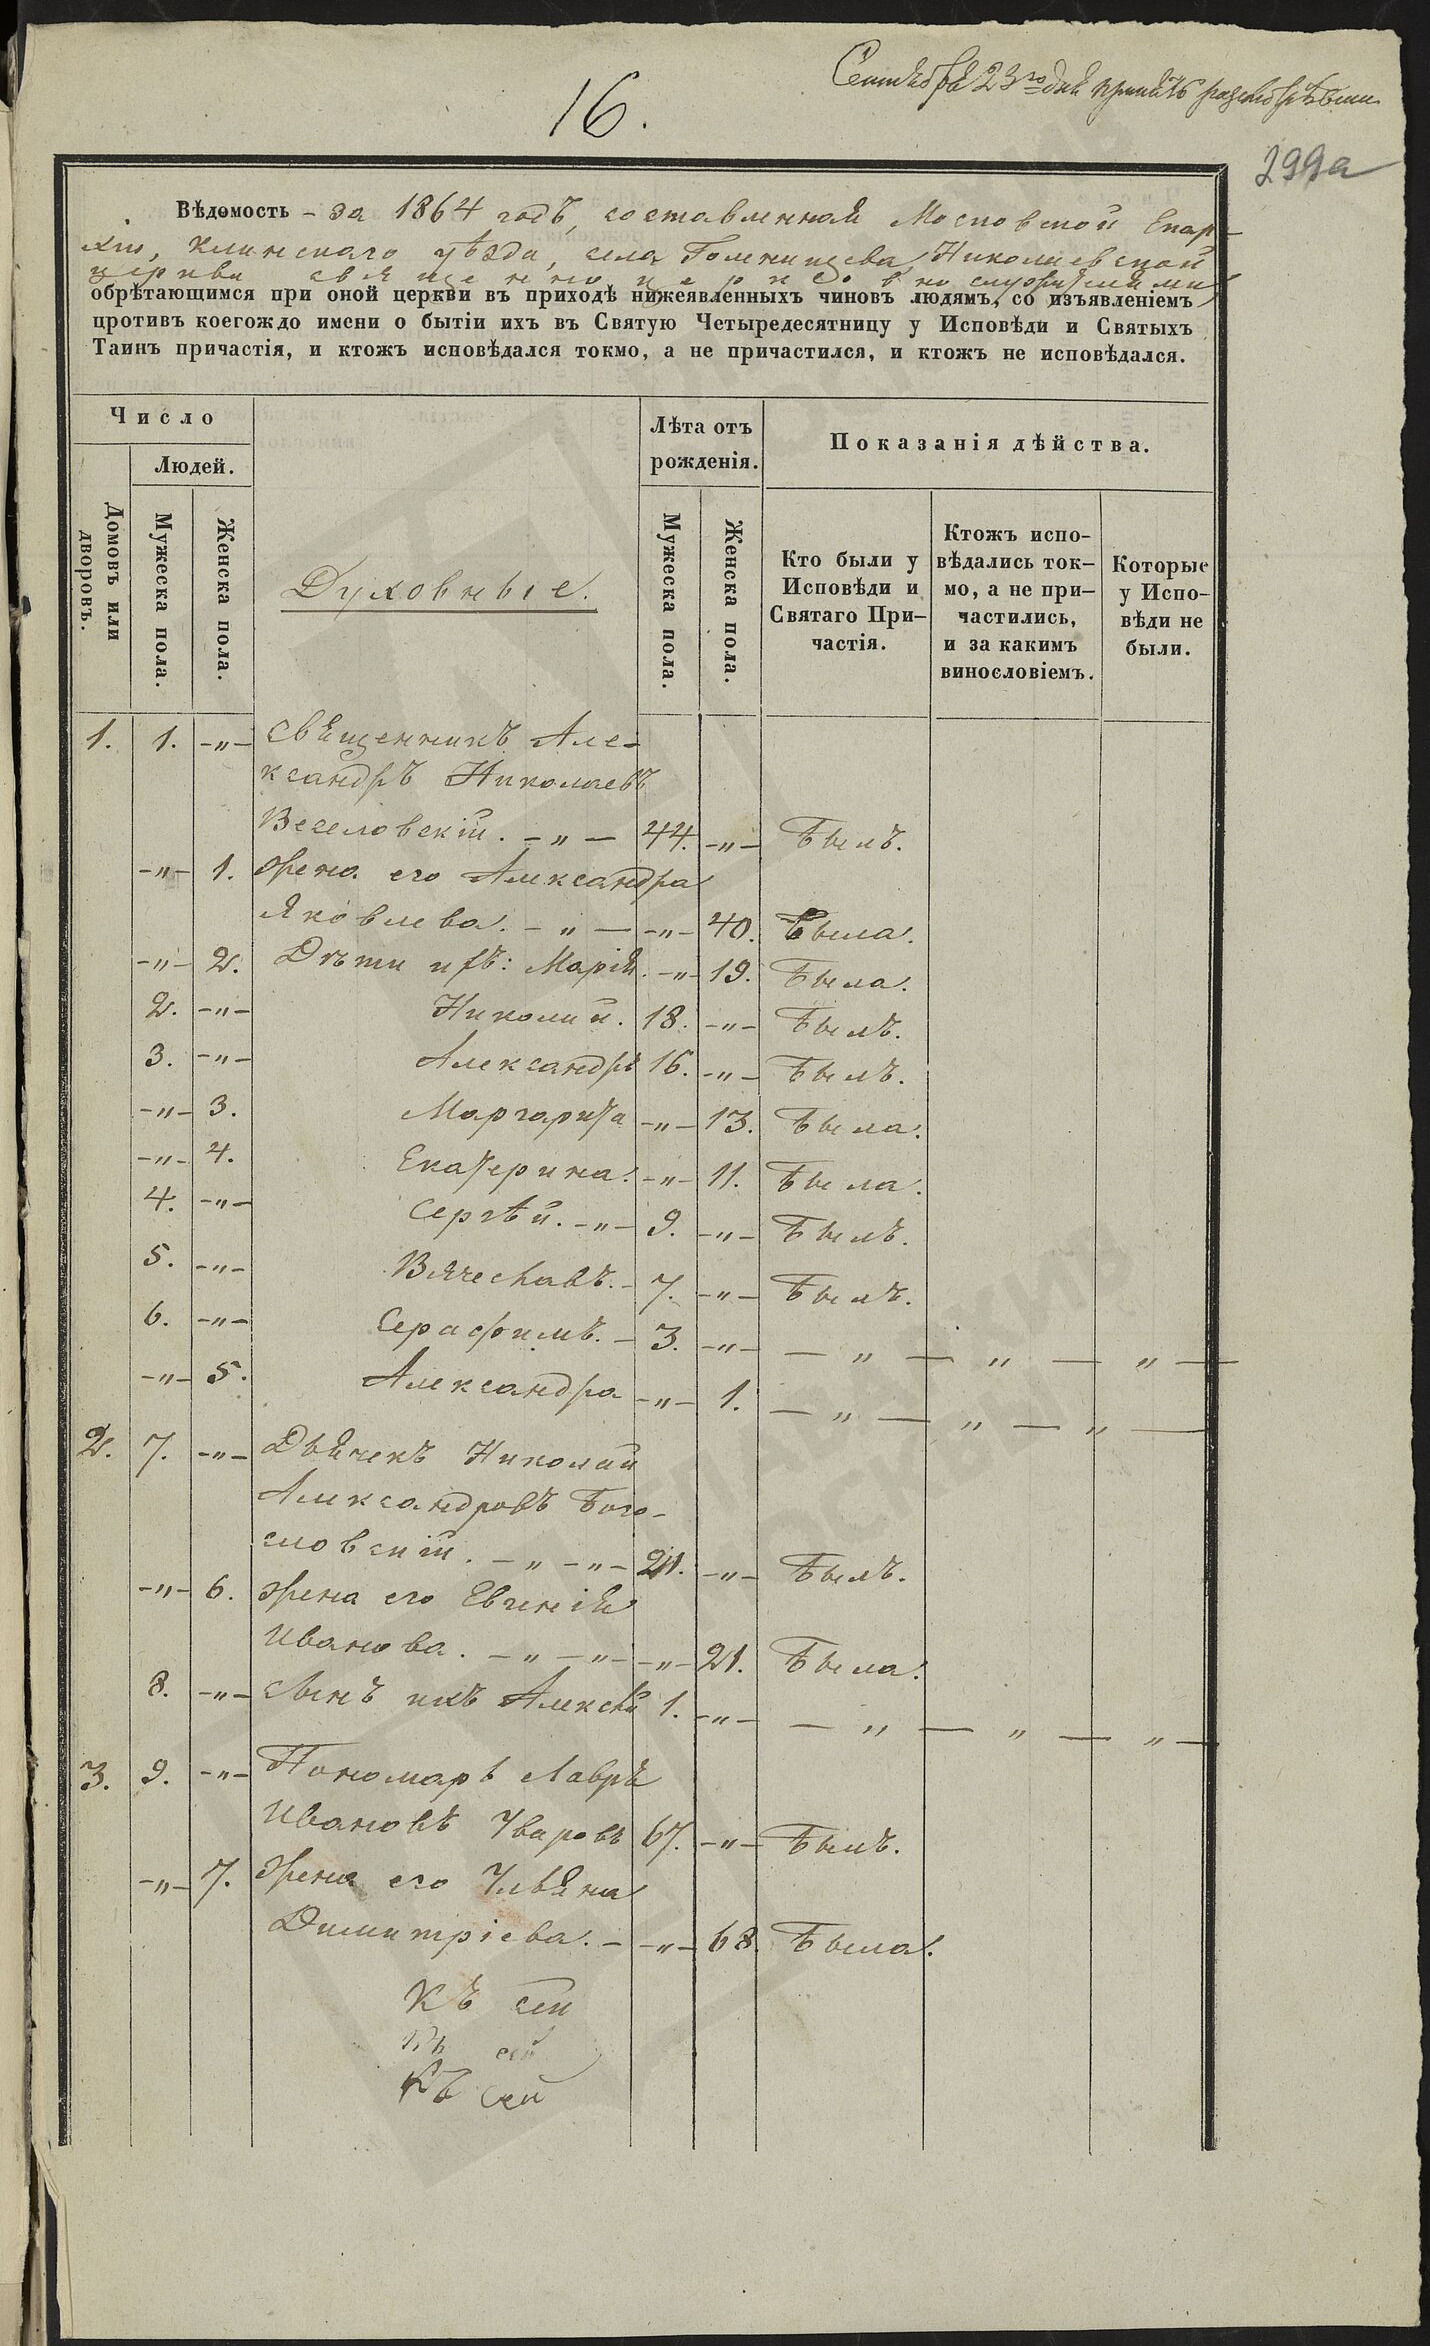 Сентября 23го дня принять разсмотрѣвши
16.
299а
Вѣдомость - за 1864 годъ, составленная Московской Епар-
хіи, Клинскаго уѣзда, села Голенищева, Николаевской
церкви священно церковно служителями
обрѣтающимся при оной церкви въ приходѣ нижеявленныхъ чиновъ людямъ, со изъявленіемъ
противъ коегождо имени о бытіи ихъ въ Святую Четыредесятницу у Исповѣди и Святыхъ
Таинъ причастія, и ктожъ исповѣдался токмо, а не причастился, и ктожъ не исповѣдался.
Число
Людей.
Домовъ или дворовъ.
Мужеска пола.
Женска пола.
Духовные.
Лѣта отъ рожденія.
Мужеска пола.
Женска пола.
Показанія дѣйства.
Кто были у
Исповѣди и
Святаго При-
частія.
Ктожъ испо-
вѣдались ток-
мо, а не при-
частились,
и за какимъ
винословіемъ.
Которые
у Испо-
вѣди не
были.
1. 1. -„- Священникъ Але-
ксандръ Николаевъ
Веселовскій. - „ - 44. -„- Былъ.
-„- 1. Жена его Александра
Яковлева. - „ - -„- 40. Была.
-„- 2. Дѣти ихъ: Марія. -„- 19. Была.
2. -„- Николай. 18. -„- Былъ.
3. -„- Александръ 16. -„- Былъ.
-„- 3. Маргарита -„- 13. Была.
-„- 4. Екатерина. -„- 11. Была.
4. -„- Сергѣй. -„- 9. -„- Былъ.
5. -„- Вячеславъ. - 7. -„- Былъ.
6. -„- Серафимъ. - 3. -„- — „ — „ — „ —
-„- 5. Александра -„- 1. — „ — „ — „ —
2. 7. -„- Дьячекъ Николай
Александровъ Бого-
словскій. - „ -„- 21. -„- Былъ.
-„- 6. Жена его Евгенія
Иванова. - „ -„- -„- 21. Была.
8. -„- сынъ ихъ Алексѣй 1. -„- — „ — „ — „ —
3. 9. -„- Пономарь Лавръ
Ивановъ Уваровъ 67. -„- Былъ.
-„- 7. Жена его Ульяна
Димитріева. - -„- 68. Была.
Къ сей
Къ сей
Къ сей